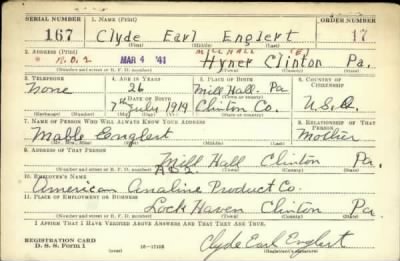 SERIAL NUMBER 1. NAME (Print) ORDER NUMBER
167 Clyde Earl Englert 17
(First) (Middle) (Last)
2. ADDRESS (Print) MILL HALL
R.D.2 MAR 4 '41 Hyner Clinton Pa.
(Number and street or R. F. D. number) (Town) (County) (State)
3. TELEPHONE 4. AGE IN YEARS 5. PLACE OF BIRTH 6. COUNTRY OF CITIZENSHIP
None 26 Mill Hall Pa.
DATE OF BIRTH (Town or county)
7th July 1914 Clinton Co. U.S.A.
(Exchange) (Number) (Mo.) (Day) (Yr.) (State or country)
7. NAME OF PERSON WHO WILL ALWAYS KNOW YOUR ADDRESS 8. RELATIONSHIP OF THAT PERSON
Mable Englert Mother
(Mr., Mrs., Miss) (First) (Middle) (Last)
9. ADDRESS OF THAT PERSON
Mill Hall Clinton Pa.
R.D.2.
(Number and street or R. F. D. number) (Town) (County) (State)
10. EMPLOYER'S NAME
American Analine Product Co.
11. PLACE OF EMPLOYMENT OR BUSINESS
Lock Haven Clinton Pa.
(Number and street or R. F. D. number) (Town) (County) (State)
I AFFIRM THAT I HAVE VERIFIED ABOVE ANSWERS AND THAT THEY ARE TRUE.
REGISTRATION CARD
D. S. S. Form 1 16-17105 Clyde Earl Englert